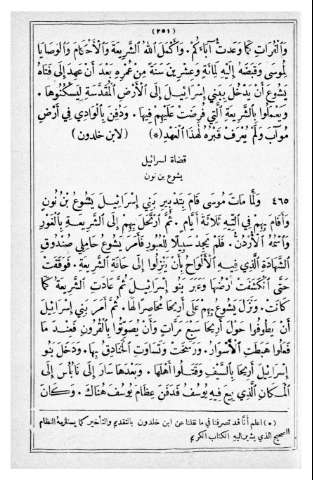 (٢٥١)
وَٱلْفُرَاتِ كَمَا وَعَدْتُ آبَاءَكُمْ. وَأَكْمَلَ ٱللهُ ٱلشَّرِيعَةَ وَٱلْأَحْكَامَ وَٱلْوَصَايَا
لِمُوسَى وَقَبَضَهُ إِلَيْهِ لِمِائَةٍ وَعِشْرِينَ سَنَةً مِنْ عُمْرِهِ بَعْدَ أَنْ عَهِدَ إِلَى فَتَاهُ
يَشُوعَ أَنْ يَدْخُلَ بِبَنِي إِسْرَائِيلَ إِلَى ٱلْأَرْضِ ٱلْمُقَدَّسَةِ لِيَسْكُنُوهَا.
وَيَعْمَلُوا بِٱلشَّرِيعَةِ ٱلَّتِي فُرِضَتْ عَلَيْهِمْ فِيهَا. وَدُفِنَ بِٱلْوَادِي فِي أَرْضِ
مُوآبَ وَلَمْ يُعْرَفْ قَبْرُهُ لِهٰذَا ٱلْعَهْدِ (*) (لابن خلدون)
قضاة اسرائيل
يشوع بن نون
٤٦٥ وَلَمَّا مَاتَ مُوسَى قَامَ بِتَدْبِيرِ بَنِي إِسْرَائِيلَ يَشُوعُ بْنُ نُونَ
وَأَقَامَ بِهِمْ فِي ٱلتِّيهِ ثَلَاثَةَ أَيَّامٍ. ثُمَّ ٱرْتَحَلَ بِهِمْ إِلَى ٱلشَّرِيعَةِ بِٱلْغَوْرِ
وَٱسْمُهُ ٱلْأُرْدُنُّ. فَلَمْ يَجِدْ سَبِيلًا لِلْعُبُورِ فَأَمَرَ يَشُوعُ حَامِلِي صُنْدُوقِ
ٱلشَّهَادَةِ ٱلَّذِي فِيهِ ٱلْأَلْوَاحُ بِأَنْ يَنْزِلُوا إِلَى حَافَةِ ٱلشَّرِيعَةِ. فَوَقَفَتْ
حَتَّى ٱنْكَشَفَتْ أَرْضُهَا وَعَبَرَ بَنُو إِسْرَائِيلَ ثُمَّ عَادَتِ ٱلشَّرِيعَةُ كَمَا
كَانَتْ. وَنَزَلَ يَشُوعُ بِهِمْ عَلَى أَرِيحَا مُحَاصِرًا لَهَا. ثُمَّ أَمَرَ بَنِي إِسْرَائِيلَ
أَنْ يَطُوفُوا حَوْلَ أَرِيحَا سَبْعَ مَرَّاتٍ وَأَنْ يُصَوِّتُوا بِٱلْقُرُونِ فَعِنْدَ مَا
فَعَلُوا هَبَطَتِ ٱلْأَسْوَارُ. وَرَسَخَتْ وَتَسَاوَتِ ٱلْخَنَادِقُ بِهَا. وَدَخَلَ بَنُو
إِسْرَائِيلَ أَرِيحَا بِٱلسَّيْفِ وَقَتَلُوا أَهْلَهَا. وَبَعْدَهَا سَارَ إِلَى نَابُلُسَ إِلَى
ٱلْمَكَانِ ٱلَّذِي بِيعَ فِيهِ يُوسُفُ فَدَفَنَ عِظَامَ يُوسُفَ هُنَاكَ. وَكَانَ
(*) اعلم أنّا قد تصرفنا في ما نقلنا عن ابن خلدون بالتقديم والتأخير كما يستلزمهُ النظام
الصحيح الذي يشير اليهِ الكتاب الكريم